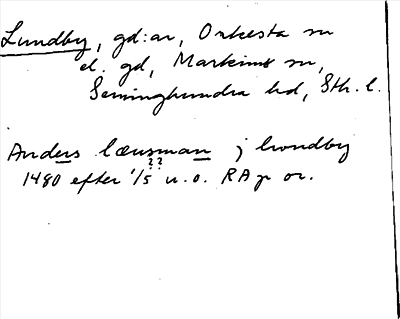 Lundby, gd:ar, Orkesta sn
el. gd, Markims sn,
Seminghundra hd, Sth. l.
Anders lænsman j lwndby
??
1480 efter 1/5 u.o. RAp or.